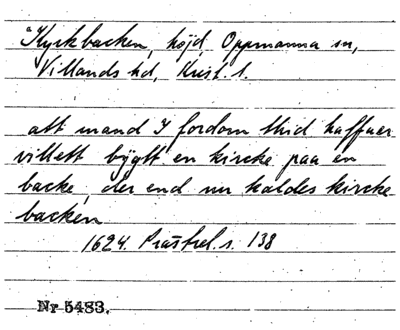 "Kyrkbacken, höjd, Oppmanna sn,
Villands hd, Krist. l.
att mand I fordom thid haffuer
villett bÿgtt en kircke paa en
backe, der end nu kaldes kircke
backen
1624. Prästrel. s. 138
Nr 5483.